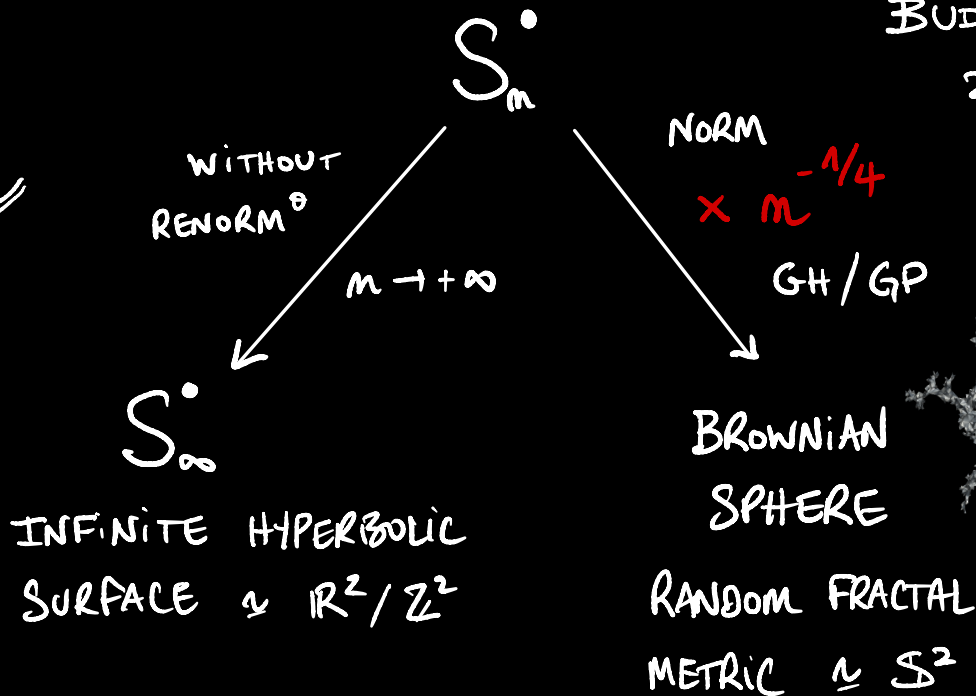 BUD
S•n
WITHOUT
RENORM°
n → +∞
NORM
× n^{-1/4}
GH/GP
S•∞
INFINITE HYPERBOLIC
SURFACE ≃ ℝ²/ℤ²
BROWNIAN
SPHERE
RANDOM FRACTAL
METRIC ≃ 𝕊²